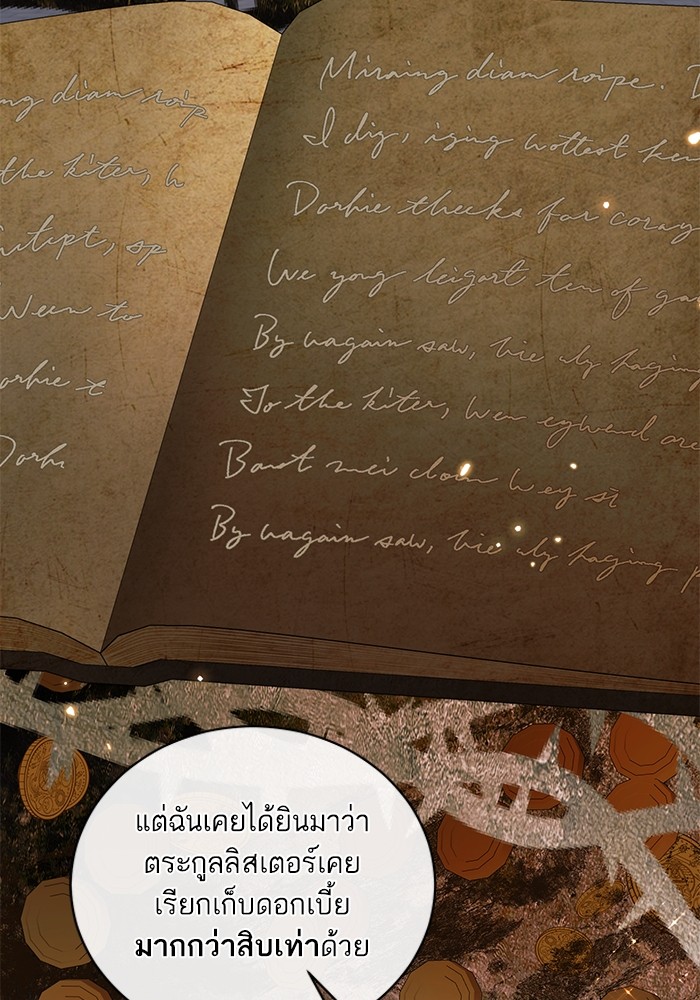 ng diam roip
the kiter, h
Ween to
orhie t
Dorh
Miraing diam roipe. D
I dig, iging wottest hen
Dorhie thecks for coray
We yong leigart ten of ga
By vagain saw, hie uly haging
To the kiter, Wen eywend are
Baust mei clom Wey st
By vagain saw, hie uly haging p
แต่ฉันเคยได้ยินมาว่า
ตระกูลลิสเตอร์เคย
เรียกเก็บดอกเบี้ย
มากกว่าสิบเท่าด้วย